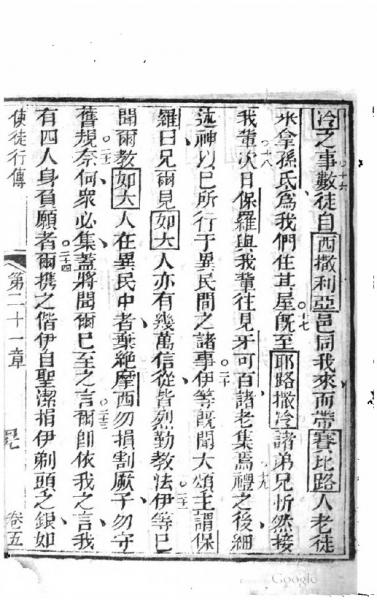 冷之事數徒自西撒利亞邑同我來而帶賽比路人老徒
米拿孫氏爲我們住其屋旣至耶路撒冷諸弟兄忻然接
我輩次日保羅與我輩往見牙可百諸老集焉禮之後細
述神以己所行于異民間之諸事伊等旣聞大頌主謂保
羅曰兄爾見如大人亦有幾萬信從皆烈勤教法伊等已
聞爾教如大人在異民中者棄絶摩西勿損割厥子勿守
舊規奈何衆必集蓋將聞爾已至之言爾卽依我之言我
有四人身負願者爾携之偕伊自聖潔捐伊剃頭之銀如
使徒行傳 第二十一章 卷五
十六
十七
十八
十九
二十
二一
二二
二三
二四
Google